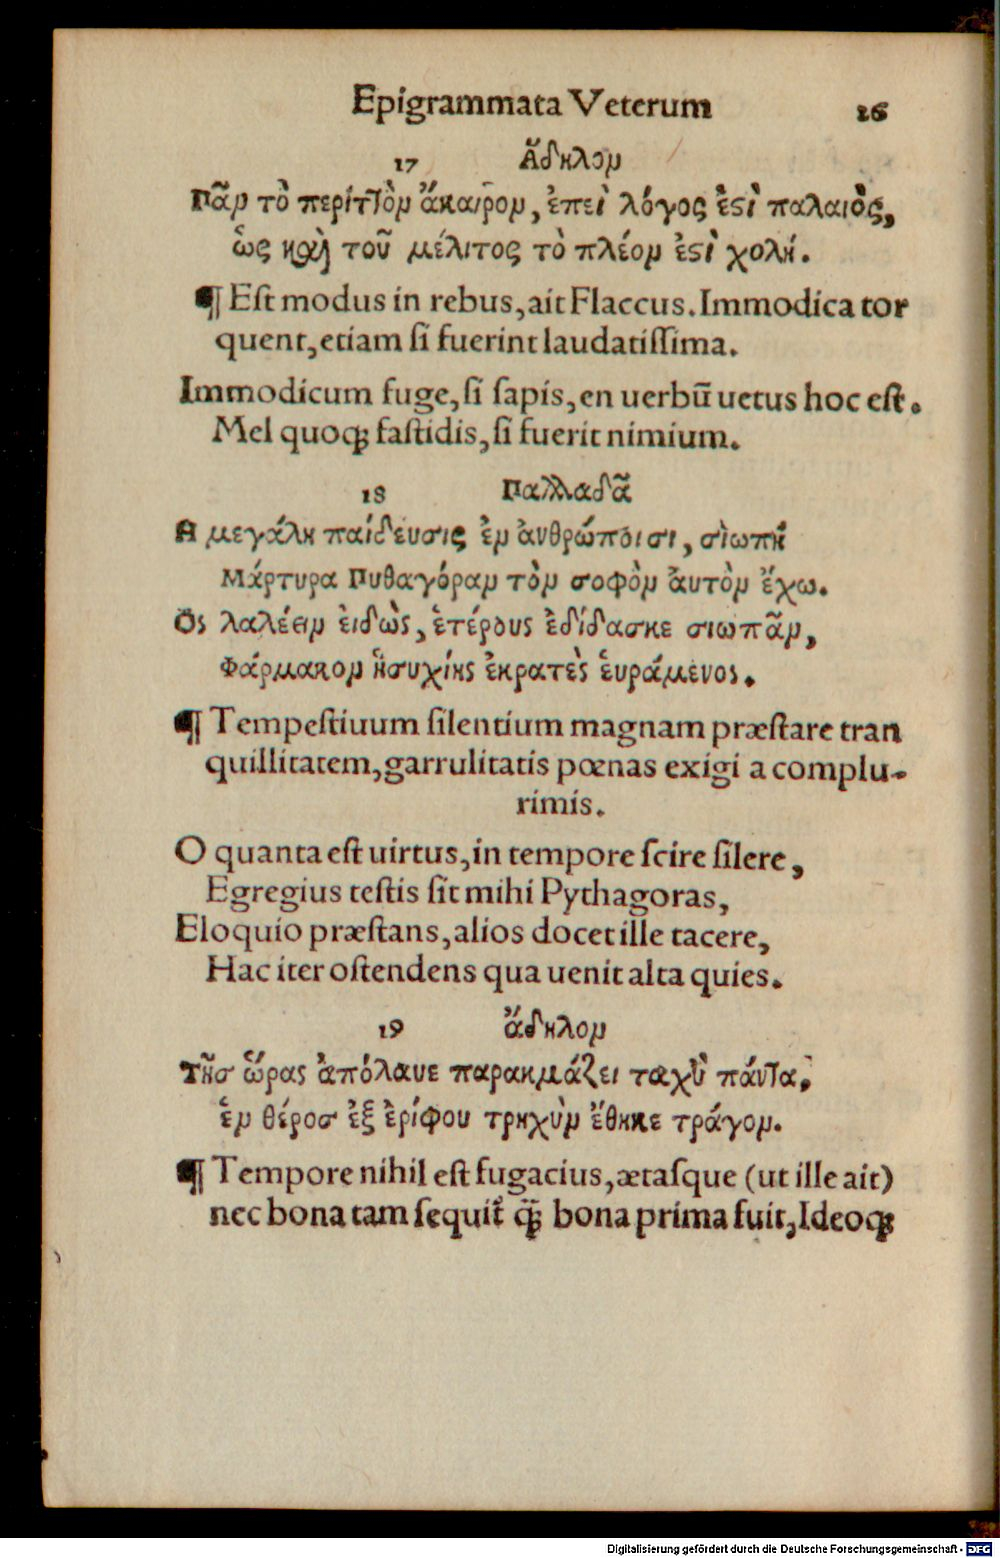 Epigrammata Veterum 16
17 Ἄδηλον
Πᾶν τὸ περίττὸν ἄκαιρον, ἐπεὶ λόγος ἐϛὶ παλαιὸς,
ὡς καὶ τοῦ μέλιτος τὸ πλέον ἐϛὶ χολή.
¶ Eſt modus in rebus, ait Flaccus. Immodica tor
quent, etiam ſi fuerint laudatiſſima.
Immodicum fuge, ſi ſapis, en uerbũ uetus hoc eſt.
Mel quoqꝫ faſtidis, ſi fuerit nimium.
18 Παλλαδᾶ
Α μεγάλη παίδευσις ἐν ἀνθρώποισι, σὶωπή
Μάρτυρα Πυθαγόραν τὸν σοφὸν ἀυτὸν ἔχω.
Ὃς λαλέειν ἐιδὼς, ἑτέρους ἐδίδασκε σιωπᾶν,
Φάρμακον ἡσυχίης ἐκρατὲς ἑυράμενος.
¶ Tempeſtiuum ſilentium magnam præſtare tran
quillitatem, garrulitatis pœnas exigi a complu-
rimis.
O quanta eſt uirtus, in tempore ſcire ſilere,
Egregius teſtis ſit mihi Pythagoras,
Eloquio præſtans, alios docet ille tacere,
Hac iter oſtendens qua uenit alta quies.
19 ἄδηλον
Τῆσ ὥρας ἀπόλαυε παρακμάζει ταχὺ πάντα,
ἓν θέροσ ἐξ ἐρίφου τρηχὺν ἔθηκε τράγον.
¶ Tempore nihil eſt fugacius, ætaſque (ut ille ait)
nec bona tam ſequit᷑ q̃ꝫ bona prima fuit, Ideoqꝫ
Digitalisierung gefördert durch die Deutsche Forschungsgemeinschaft - DFG